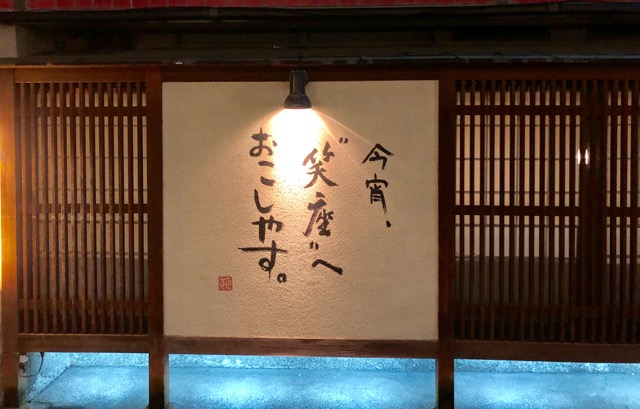 今宵、
“笑座”へ
おこしやす。